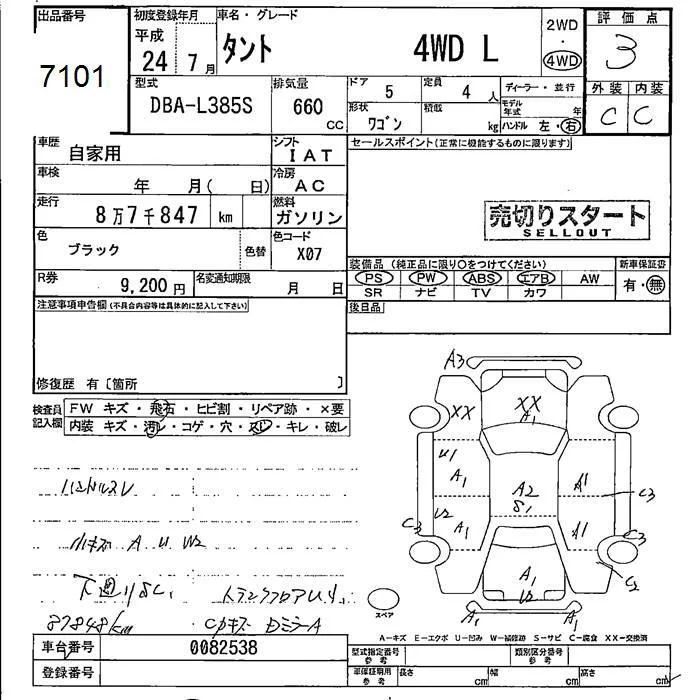 出品番号
7101
初度登録年月
平成
24年 7月
車名・グレード
タント 4WD L
2WD
・
4WD
評価点
3
外装 内装
C C
型式
DBA-L385S
排気量
660 CC
ドア
5
定員
4人
ディーラー・並行
形状
ワゴン
積載
kg
モデル年式 年
ハンドル 左・右
車歴
自家用
シフト
IAT
セールスポイント(正常に機能するものに限ります)
車検
年 月( 日)
冷房
AC
走行
8万7千847 km
燃料
ガソリン
売切りスタート
SELLOUT
色
ブラック
色替
色コード
X07
装備品(純正品に限り○をつけてください)
新車保証書
PS PW ABS エアB AW
SR ナビ TV カワ
有・無
R券
9,200円
名変通知期限
月 日
後日品
注意事項申告欄(不具合内容等は具体的に記入して下さい)
修復歴 有〔箇所 〕
検査員記入欄
FW キズ・飛石・ヒビ割・リペア跡・×要
内装 キズ・汚レ・コゲ・穴・スレ・キレ・破レ
ハンドルスレ
小キズ A U W2
下廻りSC1
87848km
A3
XX
XX
A1
U1
A1
A2
S1
A1
C3
U2
A1
C3
A1
C3
C2
A1
U2
A1
A1
スペア
A-キズ E-エクボ U-凹み W-補修跡 S-サビ C-腐食 XX-交換済
車台番号
0082538
登録番号
型式指定番号
参考
類別区分番号
参考
車庫証明用
参考
長さ
cm
幅
cm
高さ
cm